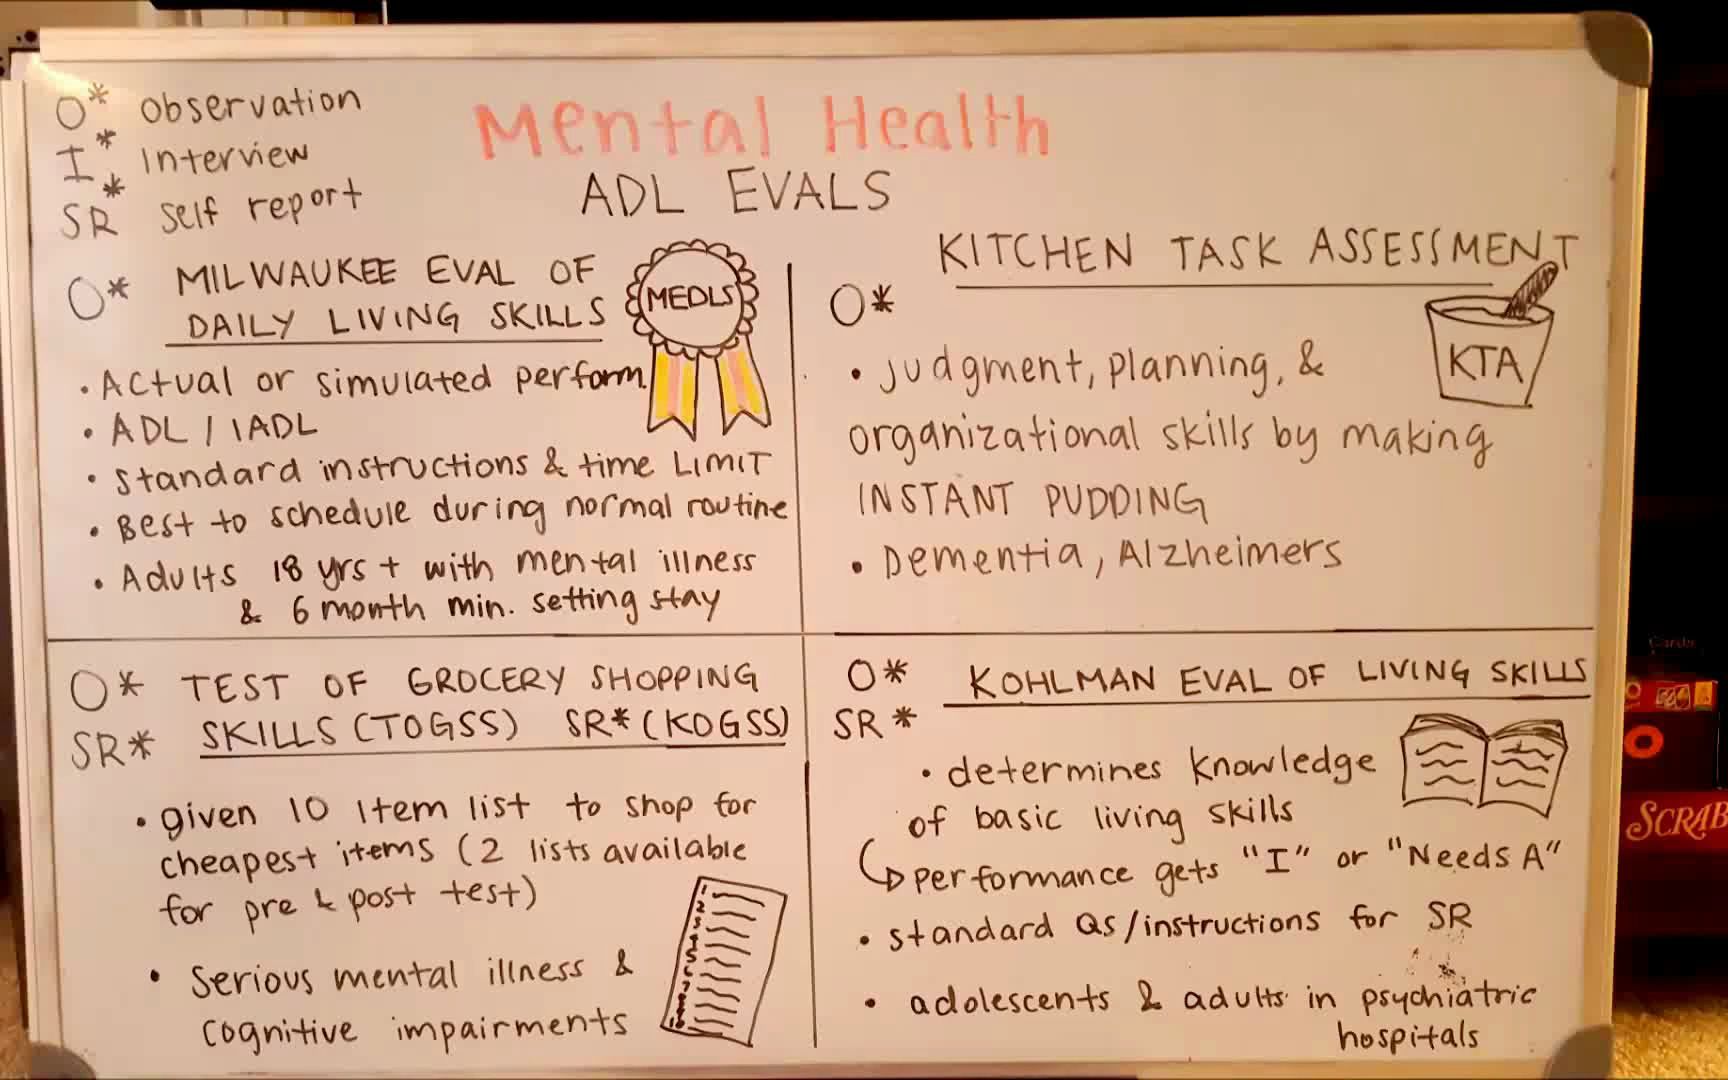 O* Observation
I* Interview
SR* Self report
Mental Health
ADL EVALS
O* MILWAUKEE EVAL OF
DAILY LIVING SKILLS
MEDLS
• Actual or simulated perform.
• ADL / IADL
• Standard instructions & time LIMIT
• Best to schedule during normal routine
• Adults 18 yrs + with mental illness
& 6 month min. setting stay
KITCHEN TASK ASSESSMENT
O*
KTA
• Judgment, planning, &
organizational skills by making
INSTANT PUDDING
• Dementia, Alzheimers
O* TEST OF GROCERY SHOPPING
SR* SKILLS (TOGSS) SR* (KOGSS)
• given 10 item list to shop for
cheapest items (2 lists available
for pre & post test)
• Serious mental illness &
cognitive impairments
O* KOHLMAN EVAL OF LIVING SKILLS
SR*
• determines knowledge
of basic living skills
performance gets "I" or "Needs A"
• standard Qs/instructions for SR
• adolescents & adults in psychiatric
hospitals
Cards
SCRAB